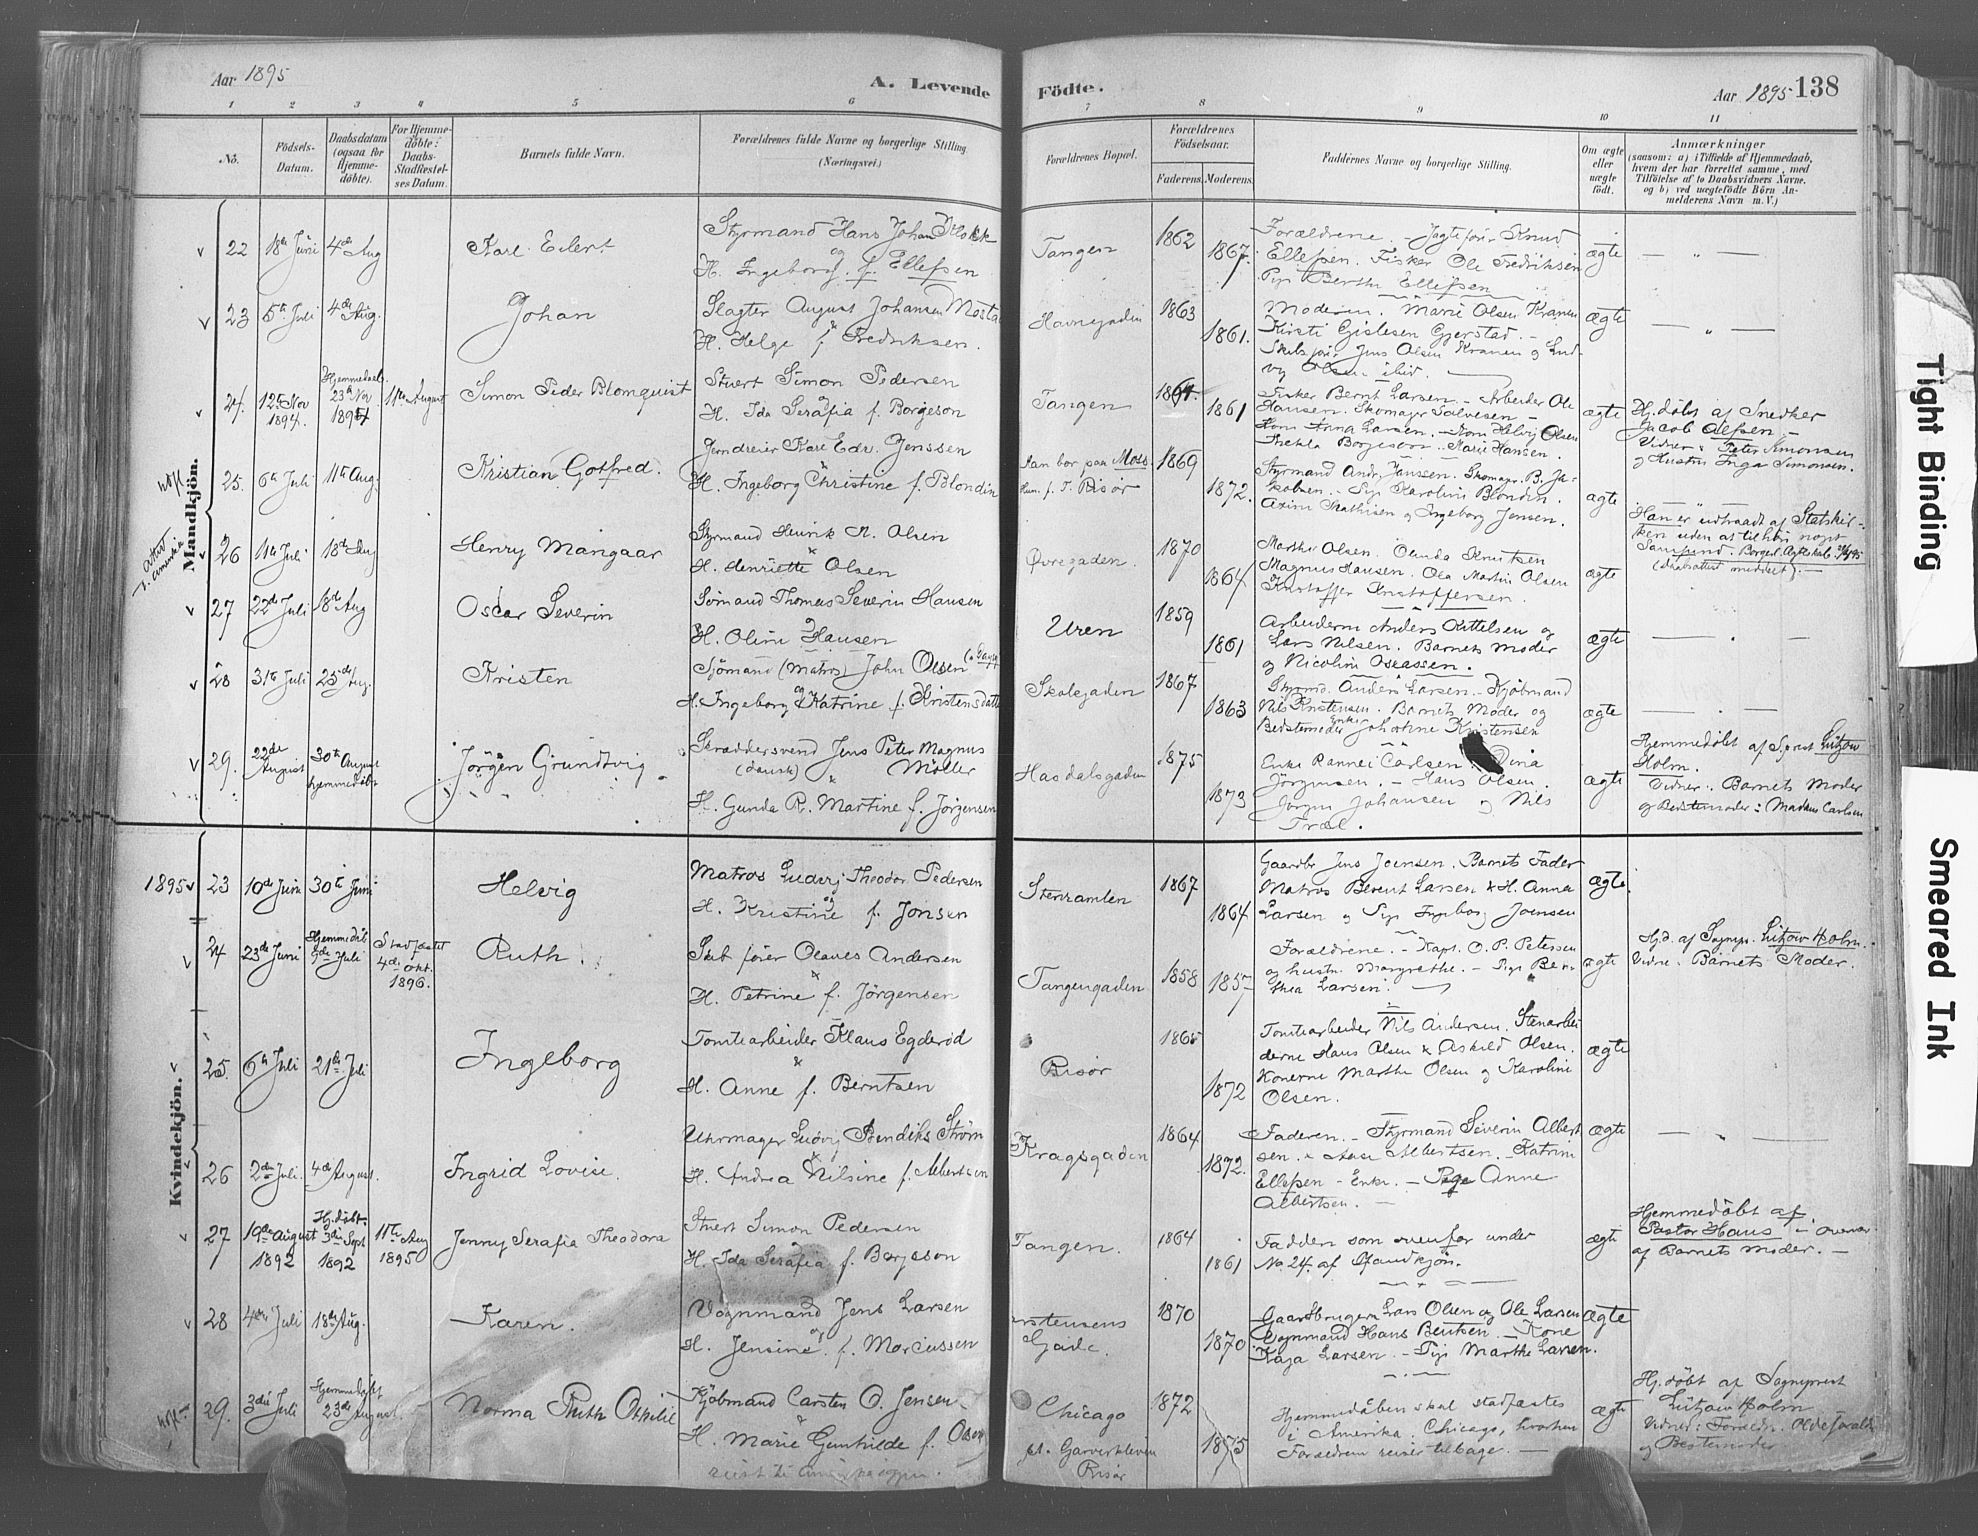 Aar 1895
A. Levende Födte.
Aar 1895 138
1 2 3 4 5 6 7 8 9 10 11
No.
Födsels-Datum.
Daabsdatum (ogsaa for Hjemme-döbte).
For Hjemme-döbte: Daabs-Stadfæstel-ses Datum.
Barnets fulde Navn.
Forældrenes fulde Navne og borgerlige Stilling (Næringsvei)
Forældrenes Bopæl.
Forældrenes Födselsaar.
Faderens. Moderens.
Faddernes Navne og borgerlige Stilling.
Om ægte eller uægte födt.
Anmærkninger
(saasom: a) i Tilfælde af Hjemmedaab,
hvem der har forrettet samme, med
Tilföielse af to Daabsvidners Navne.
og b) ved uægtefödte Börn An-
melderens Navn m. V.)
Mandkjön.
22 18de Juni 4de Aug Karl Eilert
Styrmand Hans Johan Klokk
og
H. Ingeborg f. Ellefsen
Tangen 1862 1867
Forældrene. - Jagtefør. Knud
Ellefsen. Fisker Ole Fredriksen
Pige Berthe Ellefsen
ægte
23 5te Juli 4de Aug. Johan
Slagter August Johansen
H. Helge f Fredriksen.
Havnegaden 1863 1861.
Moderen. Marie Olsen Kranen
Kirsti Gislesen Gjerstad. -
Skibsfør. Jens Olsen Kranen og Lud-
vig Olsen ibid.
ægte
24. 12te Nov 1894. Hjemmedøbt 23de Nov 1894 11te August Simon Peder Blomquist
Stuert Simon Pedersen
H. Ida Serafia f. Borgeson
Tangen 1864. 1861
Fisker Bernt Larsen. - Arbeider Ole
Hansen. Skomager Salvesen -
Kone Anna Larsen. - Kone Helvig Olsen
Thekla Borgeson. Marie Hansen.
ægte
Hj. døbt af Snedker
Jacob Olsen -
Vidner: Peter Simonsen
og Hustru Inga Simonsen.
25. 6te Juli 11te Aug. Kristian Gotfred.
Jerndreier Karl Edv. Jenssen
H. Ingeborg Christine f. Blondin
Han bor paa Moss.
Hun f. T. Risør
1869 1872.
Styrmand Andr. Hanssen. Skomager B. Ja-
kobsen. Pige Karoline Blondin.
Axine Mathisen og Ingeborg Jensen.
ægte
Han er udtraadt af Statskir-
ken uden at tilhøre noget
Samfund.
26 11te Juli 18de Aug Henry Mangaar
Styrmand Henrik M. Olsen
H. Henriette Olsen
Øvregaden. 1870 1864
Marthe Olsen. Knutsen
Magnus Hansen. Ole Martin Olsen
Kristoffer Kristoffersen.
ægte
27 22de Juli 18de Aug Oscar Severin
Sømand Thomas Severin Hansen
og
H. Oline Hansen
Uren 1859 1861
Arbeiderne Anders Kittelsen og
Lars Nilsen. Barnets Moder
og Nicoline Aseassen.
ægte
28 31te Juli 25de Aug. Kristen
Sjömand (Matros) John Olsen
H. Ingeborg Katrine f. Kristensdatter
Skolegaden 1867 1863
Styrmd. Anders Larsen. - Kjøbmand
Nils Kristensen. Barnets Moder og
Bedstemoder Enke Johanne Kristensen
ægte
29. 22de August 30te August hjemmedøbt Jörgen Grundtvig
Skræddersvend Jens Peter Magnus
(dansk) Møller
H. Gunda R. Martine f. Jörgensen
Hasdalsgaden 1875 1873
Enke Rannei Carlsen. Dina
Jörgensen. - Hans Olsen.
Jørgen Johansen og Nils
Træl.
ægte
Hjemmedøbt af Sgprst Lützow
Holm.
Vidner: Barnets Moder
og Bedstemoder: Madam Carlsen
Kvindekjön.
1895 23 10de Juni 30te Juni Helvig
Matros Ludvig Theodor Pedersen
og
H. Kristine f. Jonsen
Stenramlen 1867 1864
Gaardbr Jens Joensen. Barnets Fader
Matros Berent Larsen & H. Anna
Larsen og Pige Ingeborg Joensen
ægte.
24 23de Juni Hjemmedøbt 5de Juli Stadfæstet 4de Okt. 1896. Ruth.
Skibsfører Olaves Andersen
H. Petrine f. Jörgensen
Tangengaden 1858 1857
Forældrene. - Kapt. O. P. Petersen
og hustru Margrethe. - Pige Ber-
thea Larsen.
ægte
Hj.d. af Sognepr. Lützow Holm.
Vidne. Barnets Moder.
25. 6te Juli 21de Juli Ingeborg
Tomtearbeider Klaus Egderød
H. Anne f. Berntsen
Risör 1865 1872
Tomtearbeider Nils Andersen. Stenarbei-
derne Hans Olsen & Askild Olsen.
Konerne Marthe Olsen og Karoline
Olsen.
ægte
26 2den Juli. 4de August. Ingrid Lovise.
Uhrmager Ludvig Bendiks Ström
H. Andrea Nilsine f. Albertsen
Kragsgaden 1864 1872.
Faderen. - Styrmand Severin Albert
sen. & Aase Albertsen. - Katrine
Ellefsen - Enke. - Pige Anne
Albertsen. -
ægte
27 19de August 1892 Hj. døbt. 3die Sept 1892 11te Aug 1895 Jenny Serafia Theodora
Stuert Simon Pedersen
H. Ida Serafia f. Borgsson
Tangen. 1864 1861
Faddere som ovenfor under
No 24. af Mandkjøn.
ægte
Hjemmedøbt af
Pastor Hans
af Barnets Moder. -
28 4de Juli 18de Aug. Karen.
Vognmand Jens Larsen
og
H. Jensine f. Marcussen
Gade. 1870 1870
Gaardbrugerne Lars Olsen og Ole Larsen
Vognmand Hans Bentsen. - Kone
Kaja Larsen. - Pige Marthe Larsen.
ægte
29. 3die Juli Hjemmedøbt 23de August. Norma Ruth Othilie
Kjöbmand Carsten O. Jensen
H. Marie Gunhilde f. Olsen
Chicago
pt. Garverkleven
Risør
1872 1875
Hjemmedåben skal stadfæstes
i Amerika. Chicago, hvorhen
Forældrene reiser tilbage. -
ægte
Hj. døbt af Sogneprest
Lützow Holm
Vidner: Forældre. Oldeforældre
og Bestemoder
Tight Binding
Smeared Ink